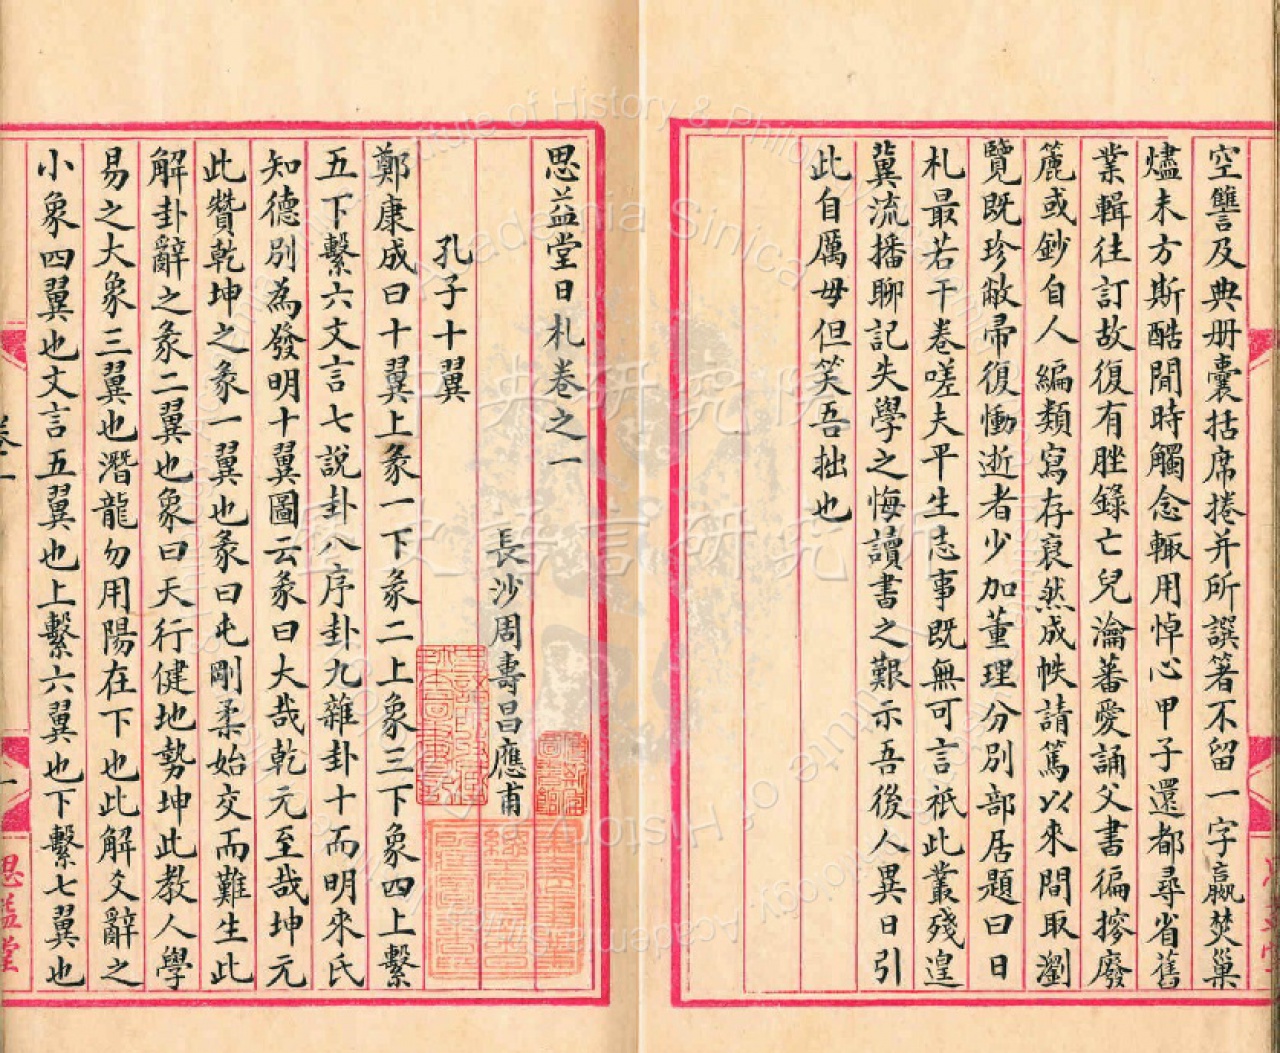 空讐及典册囊括席捲并所譔箸不留一字嬴焚巢
燼未方斯酷閒時觸念輒用悼心甲子還都尋省舊
業輯往訂故復有脞錄亡兒瀹蕃愛誦父書徧摉廢
簏或鈔自人編類寫存裒然成帙請篤以來間取瀏
覽既珍敝帚復慟逝者少加董理分別部居題曰日
札最若干卷嗟夫平生志事既無可言祇此叢殘遑
冀流播聊記失學之悔讀書之艱示吾後人異日引
此自厲毋但笑吾拙也
思益堂日札卷之一
長沙周壽昌應甫
孔子十翼
鄭康成曰十翼上彖一下彖二上象三下象四上繫
五下繫六文言七說卦八序卦九雜卦十而明來氏
知德別為發明十翼圖云彖曰大哉乾元至哉坤元
此贊乾坤之彖一翼也彖曰屯剛柔始交而難生此
解卦辭之彖二翼也象曰天行健地勢坤此教人學
易之大象三翼也潛龍勿用陽在下也此解爻辭之
小象四翼也文言五翼也上繫六翼也下繫七翼也
卷一
一
思益堂
中央研究院
歷史語言研究所
Institute of History & Philology
Academia Sinica